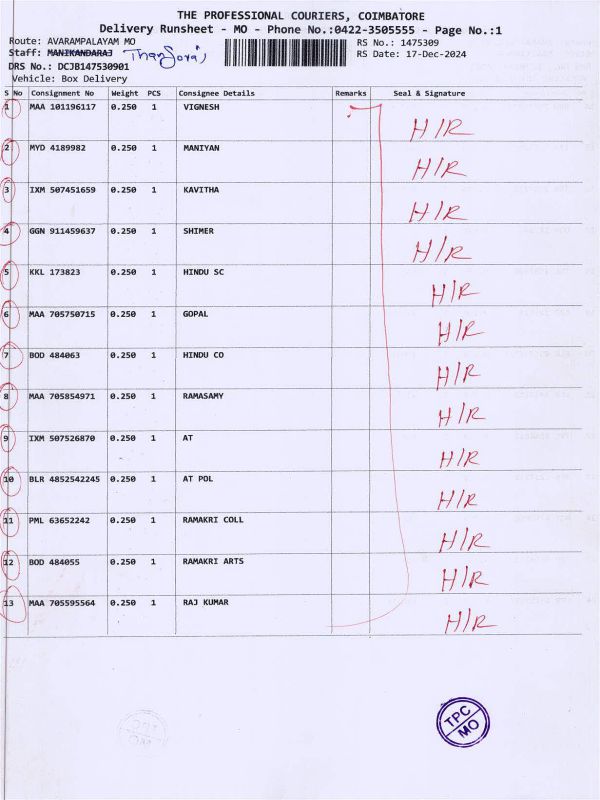 THE PROFESSIONAL COURIERS, COIMBATORE
Delivery Runsheet - MO - Phone No.:0422-3505555 - Page No.:1
Route: AVARAMPALAYAM MO RS No.: 1475309
Staff: MANIKANDARAJ RS Date: 17-Dec-2024
DRS No.: DCJB147530901
Vehicle: Box Delivery
S No Consignment No Weight PCS Consignee Details Remarks Seal & Signature
1 MAA 101196117 0.250 1 VIGNESH H/R
2 MYD 4189982 0.250 1 MANIYAN H/R
3 IXM 507451659 0.250 1 KAVITHA H/R
4 GGN 911459637 0.250 1 SHIMER H/R
5 KKL 173823 0.250 1 HINDU SC H/R
6 MAA 705750715 0.250 1 GOPAL H/R
7 BOD 484063 0.250 1 HINDU CO H/R
8 MAA 705854971 0.250 1 RAMASAMY H/R
9 IXM 507526870 0.250 1 AT H/R
10 BLR 4852542245 0.250 1 AT POL H/R
11 PML 63652242 0.250 1 RAMAKRI COLL H/R
12 BOD 484055 0.250 1 RAMAKRI ARTS H/R
13 MAA 705595564 0.250 1 RAJ KUMAR H/R
TPC
MO